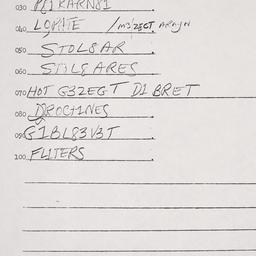 030 PE1KARN81
040 LORITE /M3ZEGT ARAJN
050 STOL8AR
060 STILGARES
070 HOT G3ZEGT D1 BRET
080 DROC1NES
090 G1BL83V3T
100 FLITERS